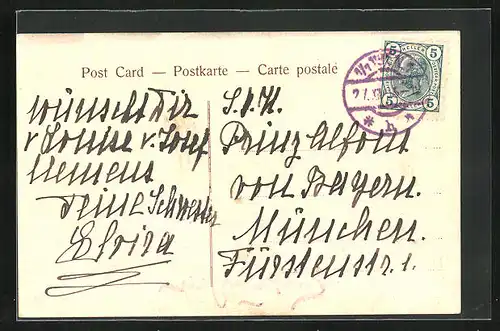 Post Card — Postkarte — Carte postale
5 HELLER 5
5 5
wünscht Dir
v Louise v. Josef
Clemens
Deine Schwester
Elvira
S.K.H.
Prinz Alfons
von Bayern.
München.
Fürstenstr. 1.
* b *